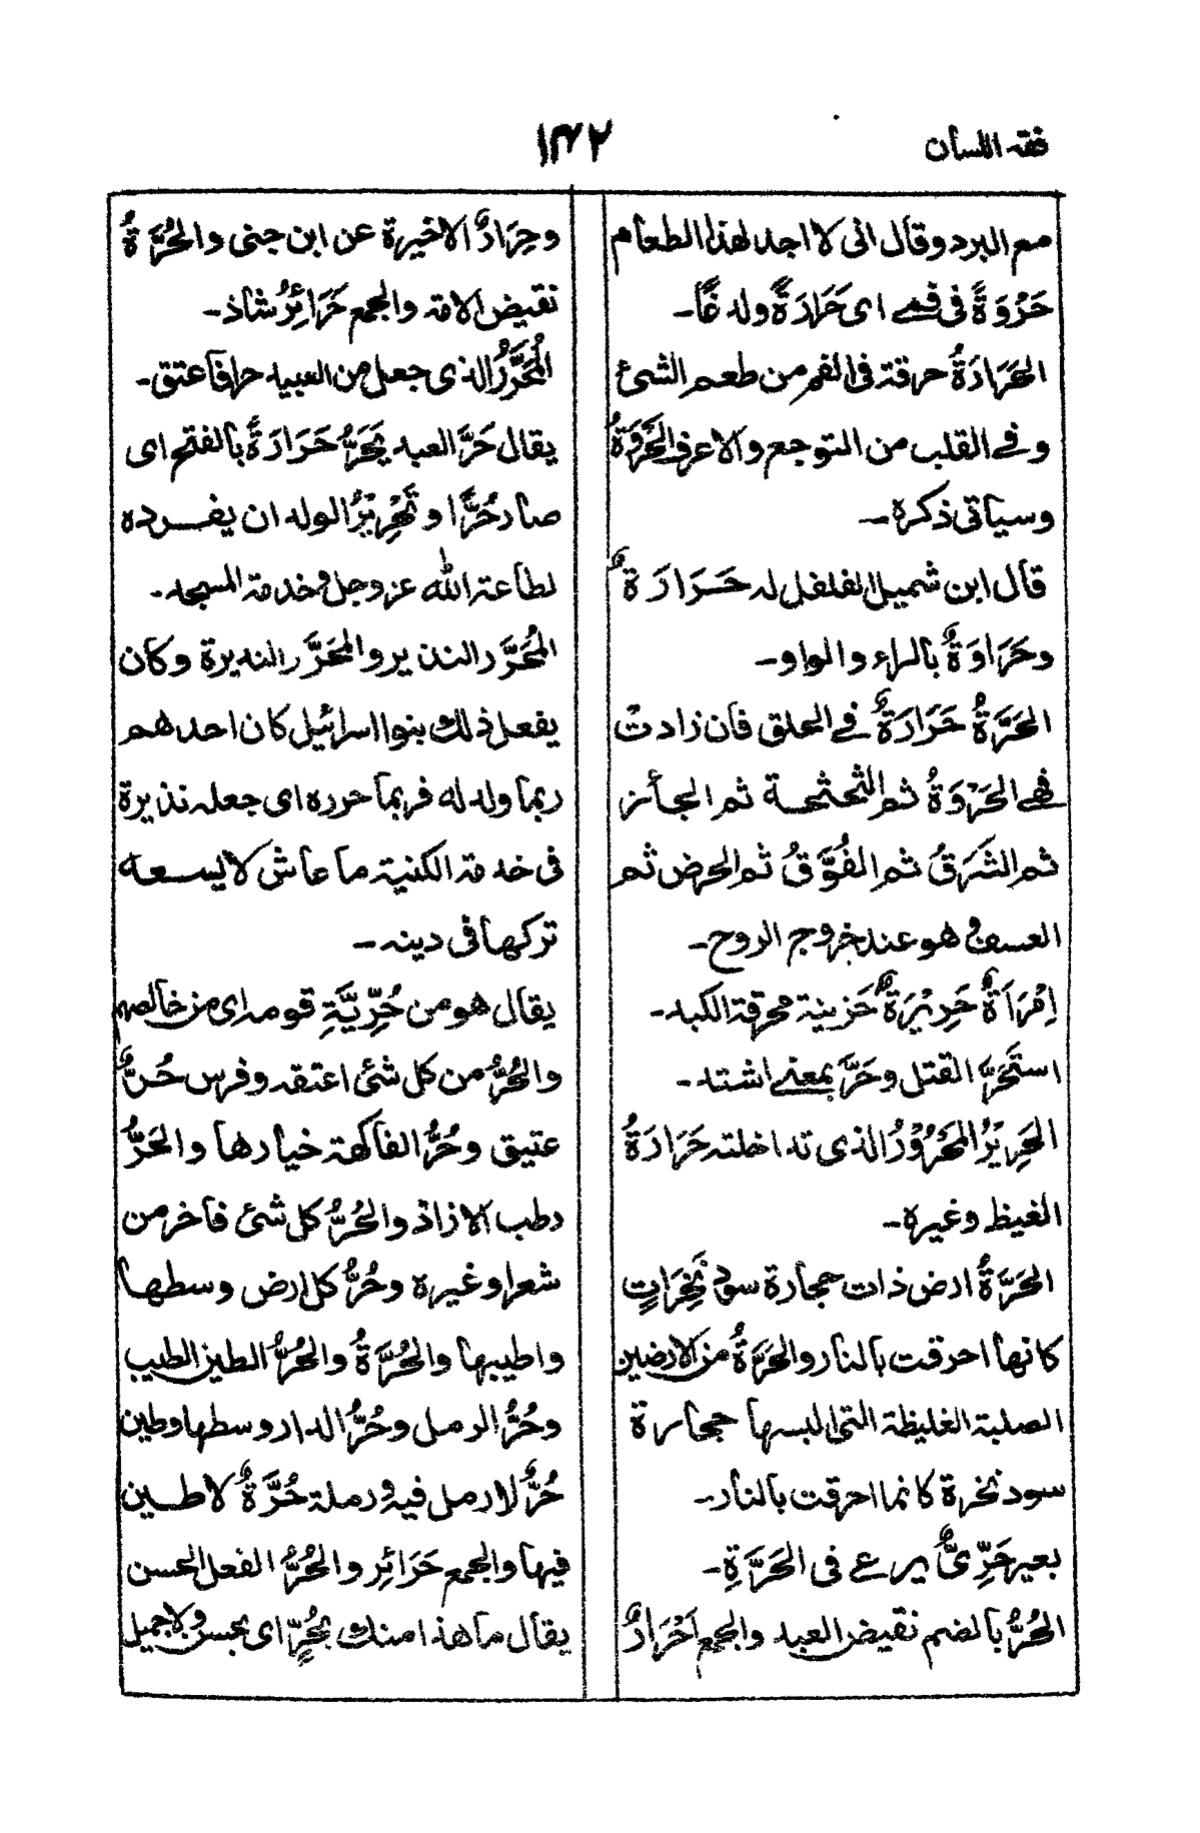 فقه اللسان
١٤٢
مع البرد وقال انى لا اجد لهذا الطعام
حَرْوَةً فى فمى اى حَرَارَةً ولدغًا۔
الحَرَارَةُ حرقة فى الفم من طعم الشئ
وفى القلب من التوجع والاعرف الحَرْوَةُ
وسياتى ذكره۔
قال ابن شميل الفلفل له حَرَارَةٌ
وحَرَاوَةٌ بالراء والواو۔
الحَرَّةُ حَرَارَةٌ فى الحلق فان زادت
فهى الحَرْوَةُ ثم الثحثحة ثم الجأئز
ثم الشَرَقُ ثم الفُوَّقُ ثم الحرض ثم
العسف وهو عند خروج الروح۔
اِمْرَاَةٌ حَرِيْرَةٌ حَزينة محرقة الكبد۔
استَحَرَّ القتل وحَرَّ بمعنى اشتد۔
الحَرِيْرُ المَحْرُوْرُ الذى تداخلته حَرَارَةُ
الغيظ وغيره۔
الحَرَّةُ ارض ذات حجارة سود نَخِرَاتٍ
كانها احرقت بالنار والحَرَّةُ من الارضين
الصلبة الغليظة التى البسها حجارة
سود نخرة كانما احرقت بالنار۔
بعير حَرِّىٌّ يرعى فى الحَرَّةِ۔
الحُرُّ بالضم نقيض العبد والجمع اَحْرَارٌ
وحِرَارٌ الاخيرة عن ابن جنى والحُرَّةُ
نقيض الامة والجمع حَرَائِرُ شاذ۔
المُحَرَّرُ الذى جعل من العبيد حرا فاعتق۔
يقال حَرَّ العبد يَحَرُّ حَرَارَةً بالفتح اى
صار حُرًّا وتَحْرِيْرُ الولد ان يفرده
لطاعة الله عز وجل وخدمة المسجد۔
المُحَرَّر النذير والمُحَرَّر النديرة وكان
يفعل ذلك بنوا اسرائيل كان احدهم
ربما ولد له فربما حرره اى جعله نذيرة
فى خدمة الكنية ما عاش لا يسعه
تركها فى دينه۔
يقال هو من حُرِّيَّةِ قومه اى من خالصهم
والحُرُّ من كل شئ اعتقه وفرس حُرٌّ
عتيق وحُرُّ الفاكهة خيارها والحَرُّ
رطب الازاذ والحُرُّ كل شئ فاخر من
شعر او غيره وحُرُّ كل ارض وسطها
واطيبها والحُرَّةُ والحُرُّ الطين الطيب
وحُرُّ الرمل وحُرُّ الدار وسطها وطين
حُرٌّ لا رمل فيه ورملة حُرَّةٌ لا طين
فيها والجمع حَرَائِر والحُرُّ الفعل الحسن
يقال ما هذا منك بحُرٍّ اى بحسن ولا جميل